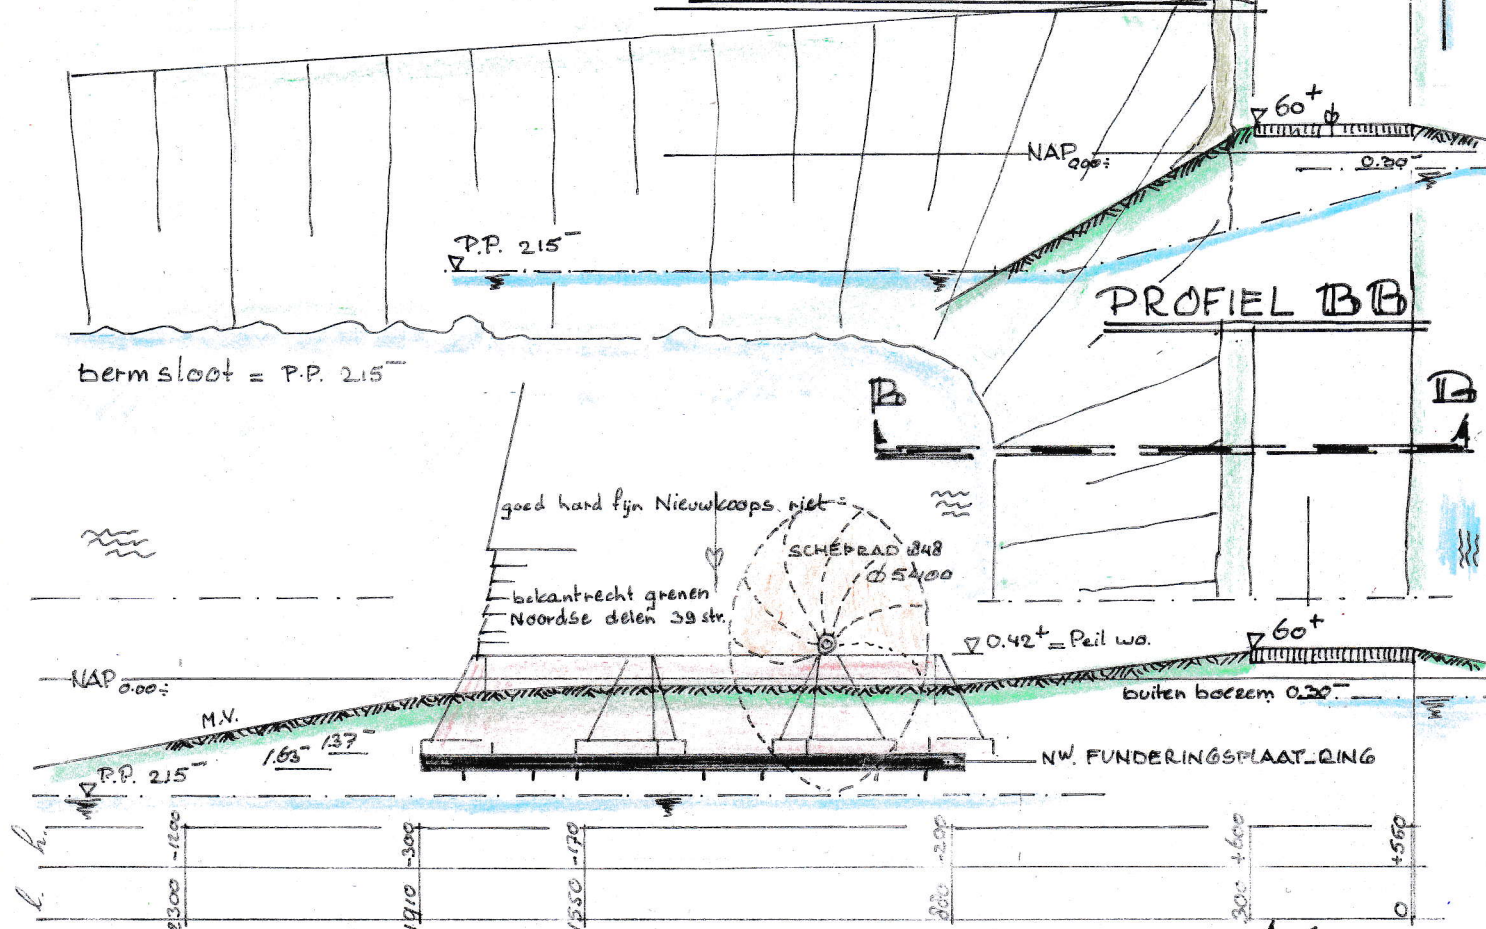 60+
NAP 0.00÷
0.30-
P.P. 215-
PROFIEL BB
berm sloot = P.P. 215-
B B
goed hard fijn Nieuwkoops. riet =
SCHEPRAD 1848
Ø 5400
bekantrecht grenen
Noordse delen 39 str.
0.42+ = Peil wo.
60+
NAP 0.00÷
buiten boezem 0.30-
M.V.
1.63- 137-
NW. FUNDERINGSPLAAT_RING
P.P. 215-
h. -1200 -300 -170 -200 +600 +550
l. 2300 1910 1550 800 300 0